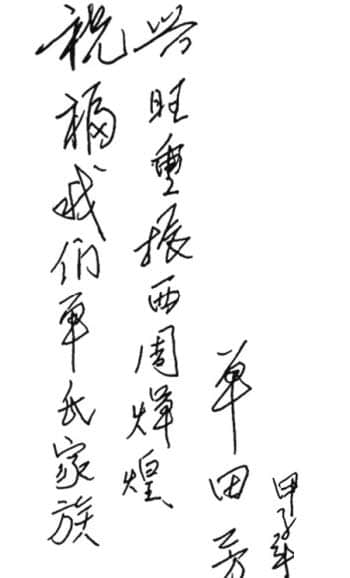 祝福我们单氏家族
兴旺重振西周煇煌
单田芳
甲子年